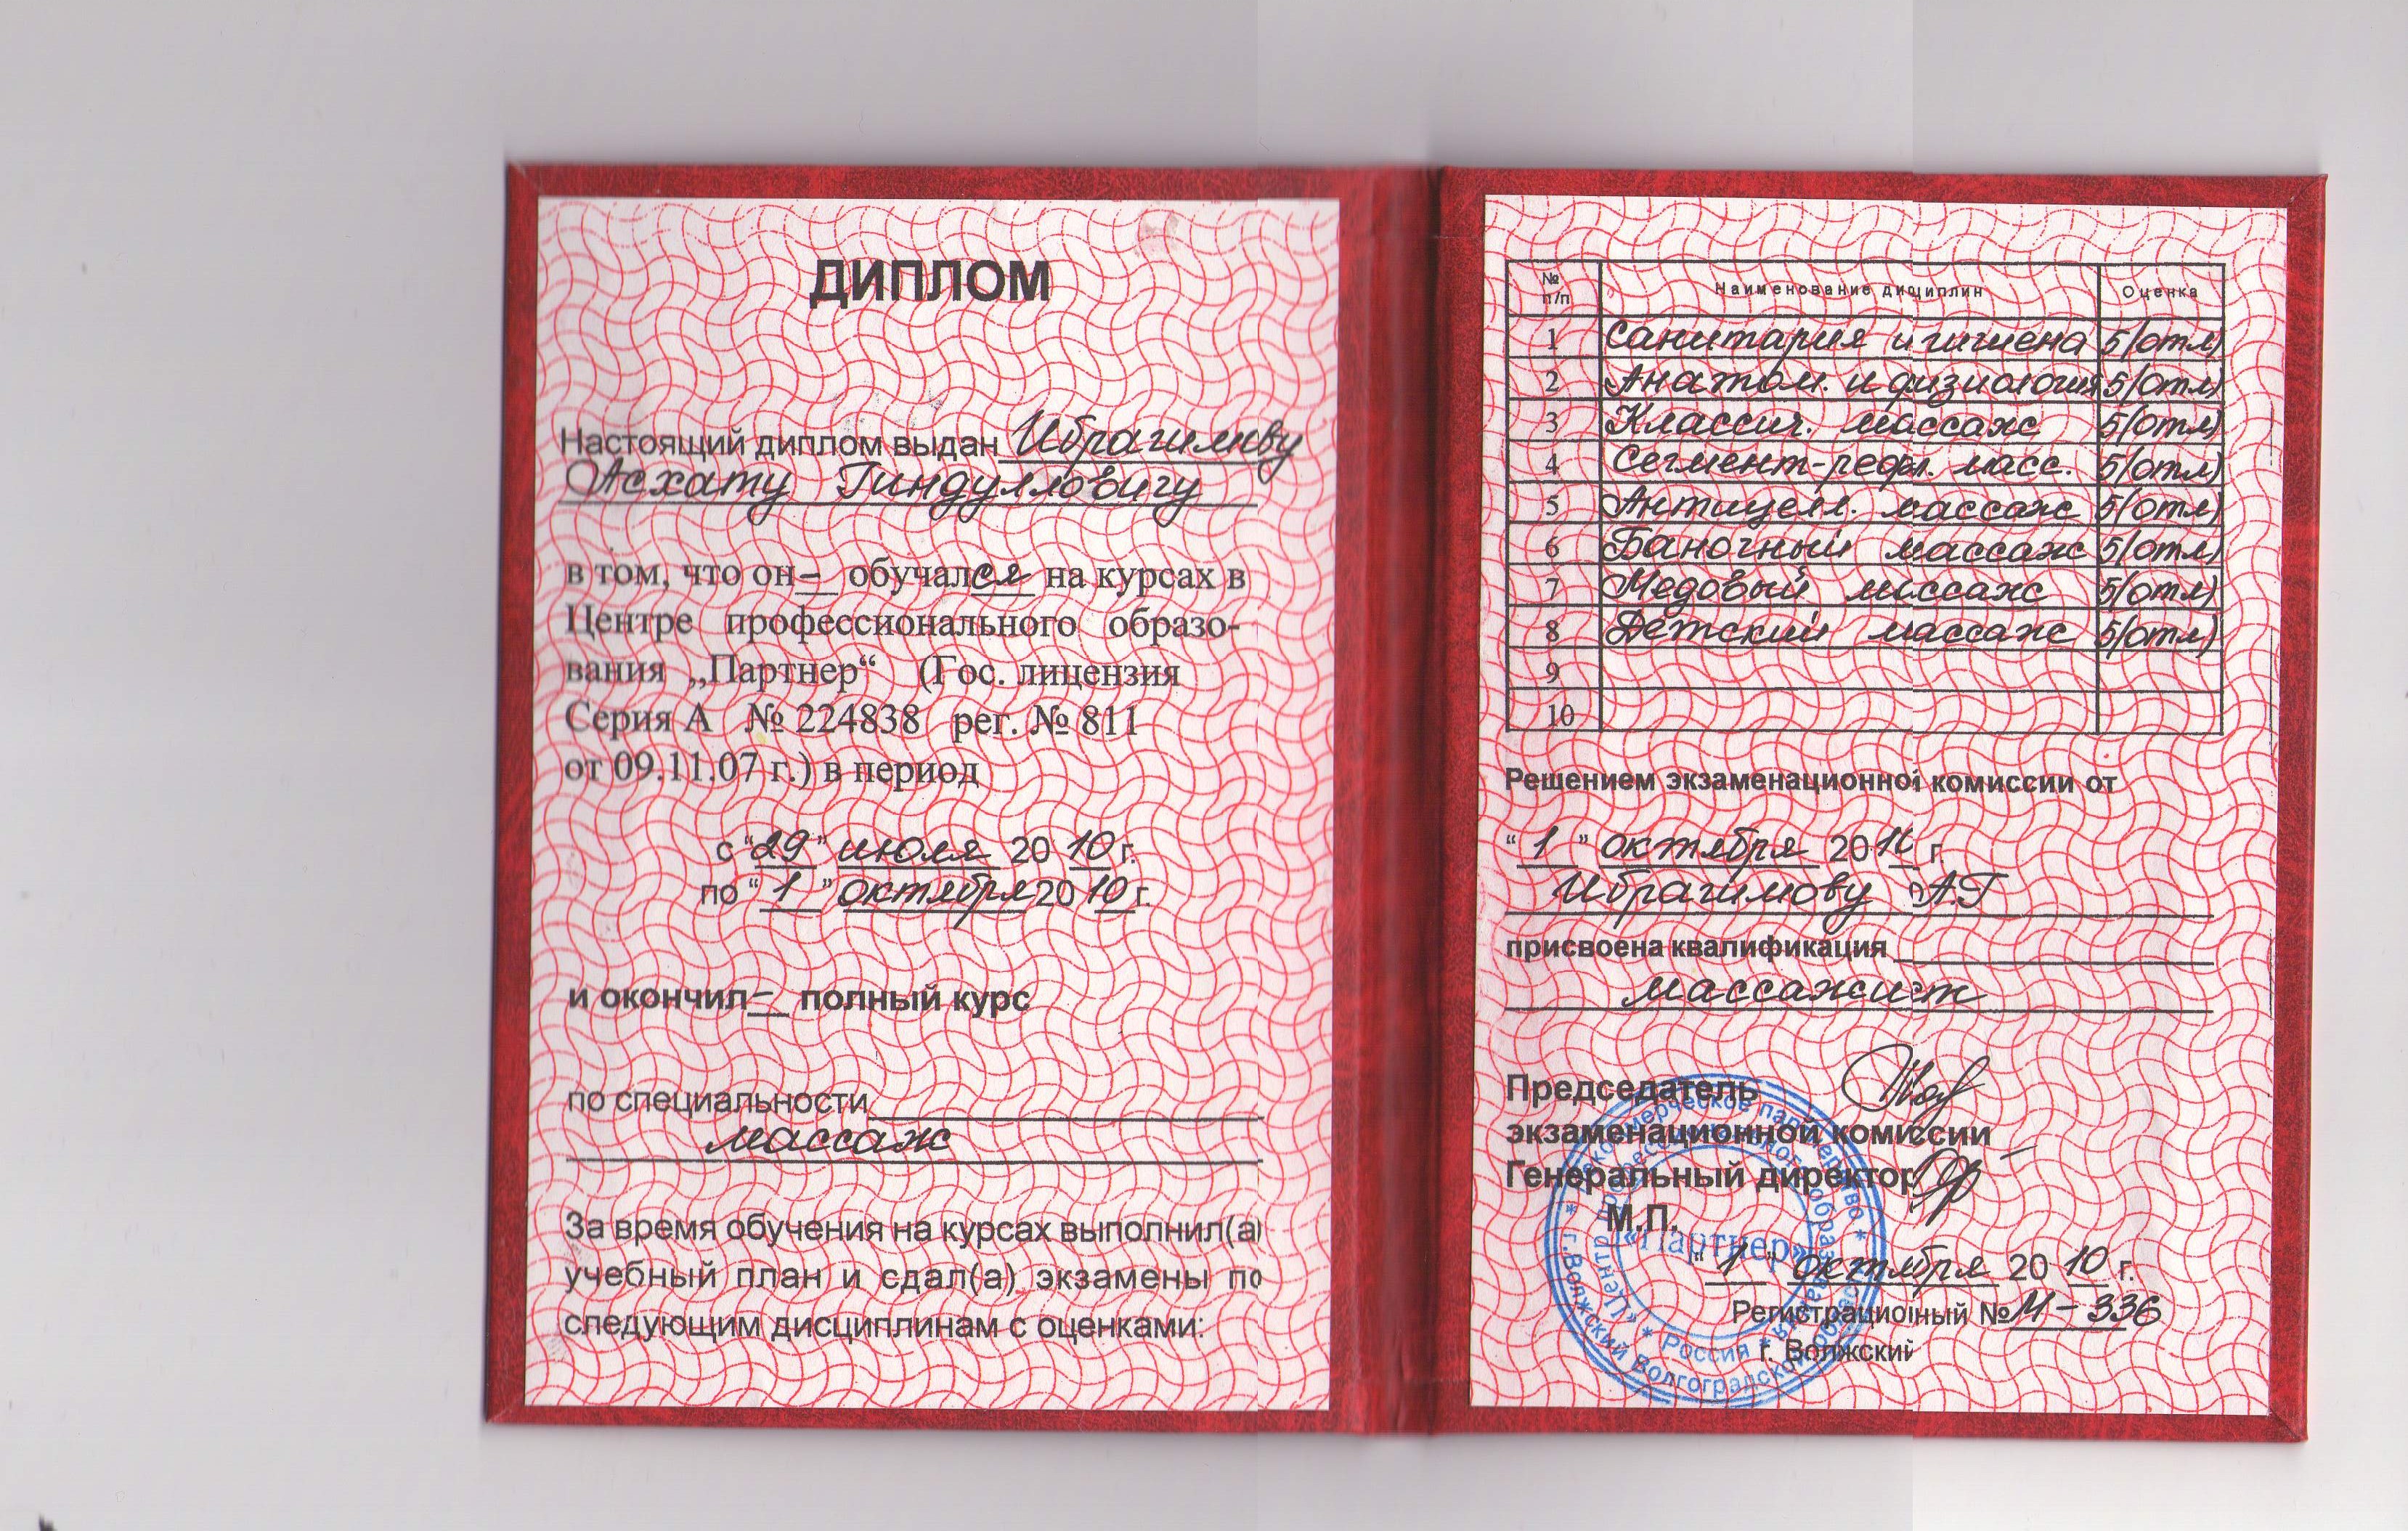 ДИПЛОМ
Настоящий диплом выдан Ибрагимову
Асхату Гиндулловичу
в том, что он – обучался на курсах в
Центре профессионального образо-
вания „Партнер“ (Гос. лицензия
Серия А № 224838 рег. № 811
от 09.11.07 г.) в период
с “29” июля 2010 г.
по “1” октября 2010 г.
и окончил – полный курс
по специальности
массаж
За время обучения на курсах выполнил(а)
учебный план и сдал(а) экзамены по
следующим дисциплинам с оценками:
№ п/п Наименование дисциплин Оценка
1 Санитария и гигиена 5(отл)
2 Анатом. и физиология 5(отл)
3 Классич. массаж 5(отл)
4 Сегмент-рефл. масс. 5(отл)
5 Антицелл. массаж 5(отл)
6 Баночный массаж 5(отл)
7 Медовый массаж 5(отл)
8 Детский массаж 5(отл)
9
10
Решением экзаменационной комиссии от
“1” октября 2010 г.
Ибрагимову А.Г
присвоена квалификация
массажист
Председатель
экзаменационной комиссии
Генеральный директор
М.П.
«Партнер»
“1” октября 2010 г.
Регистрационный № М-336
г. Волжский